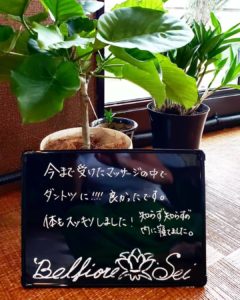 今まで受けたマッサージの中で
ダントツに!!!! 良かったです。
体もスッキリしました! 知らず知らずの
内に寝てました。
Belfiore Sei